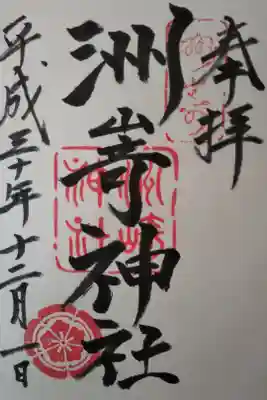 奉拝
洲嵜神社
平成三十年十二月一日
洲崎
神社